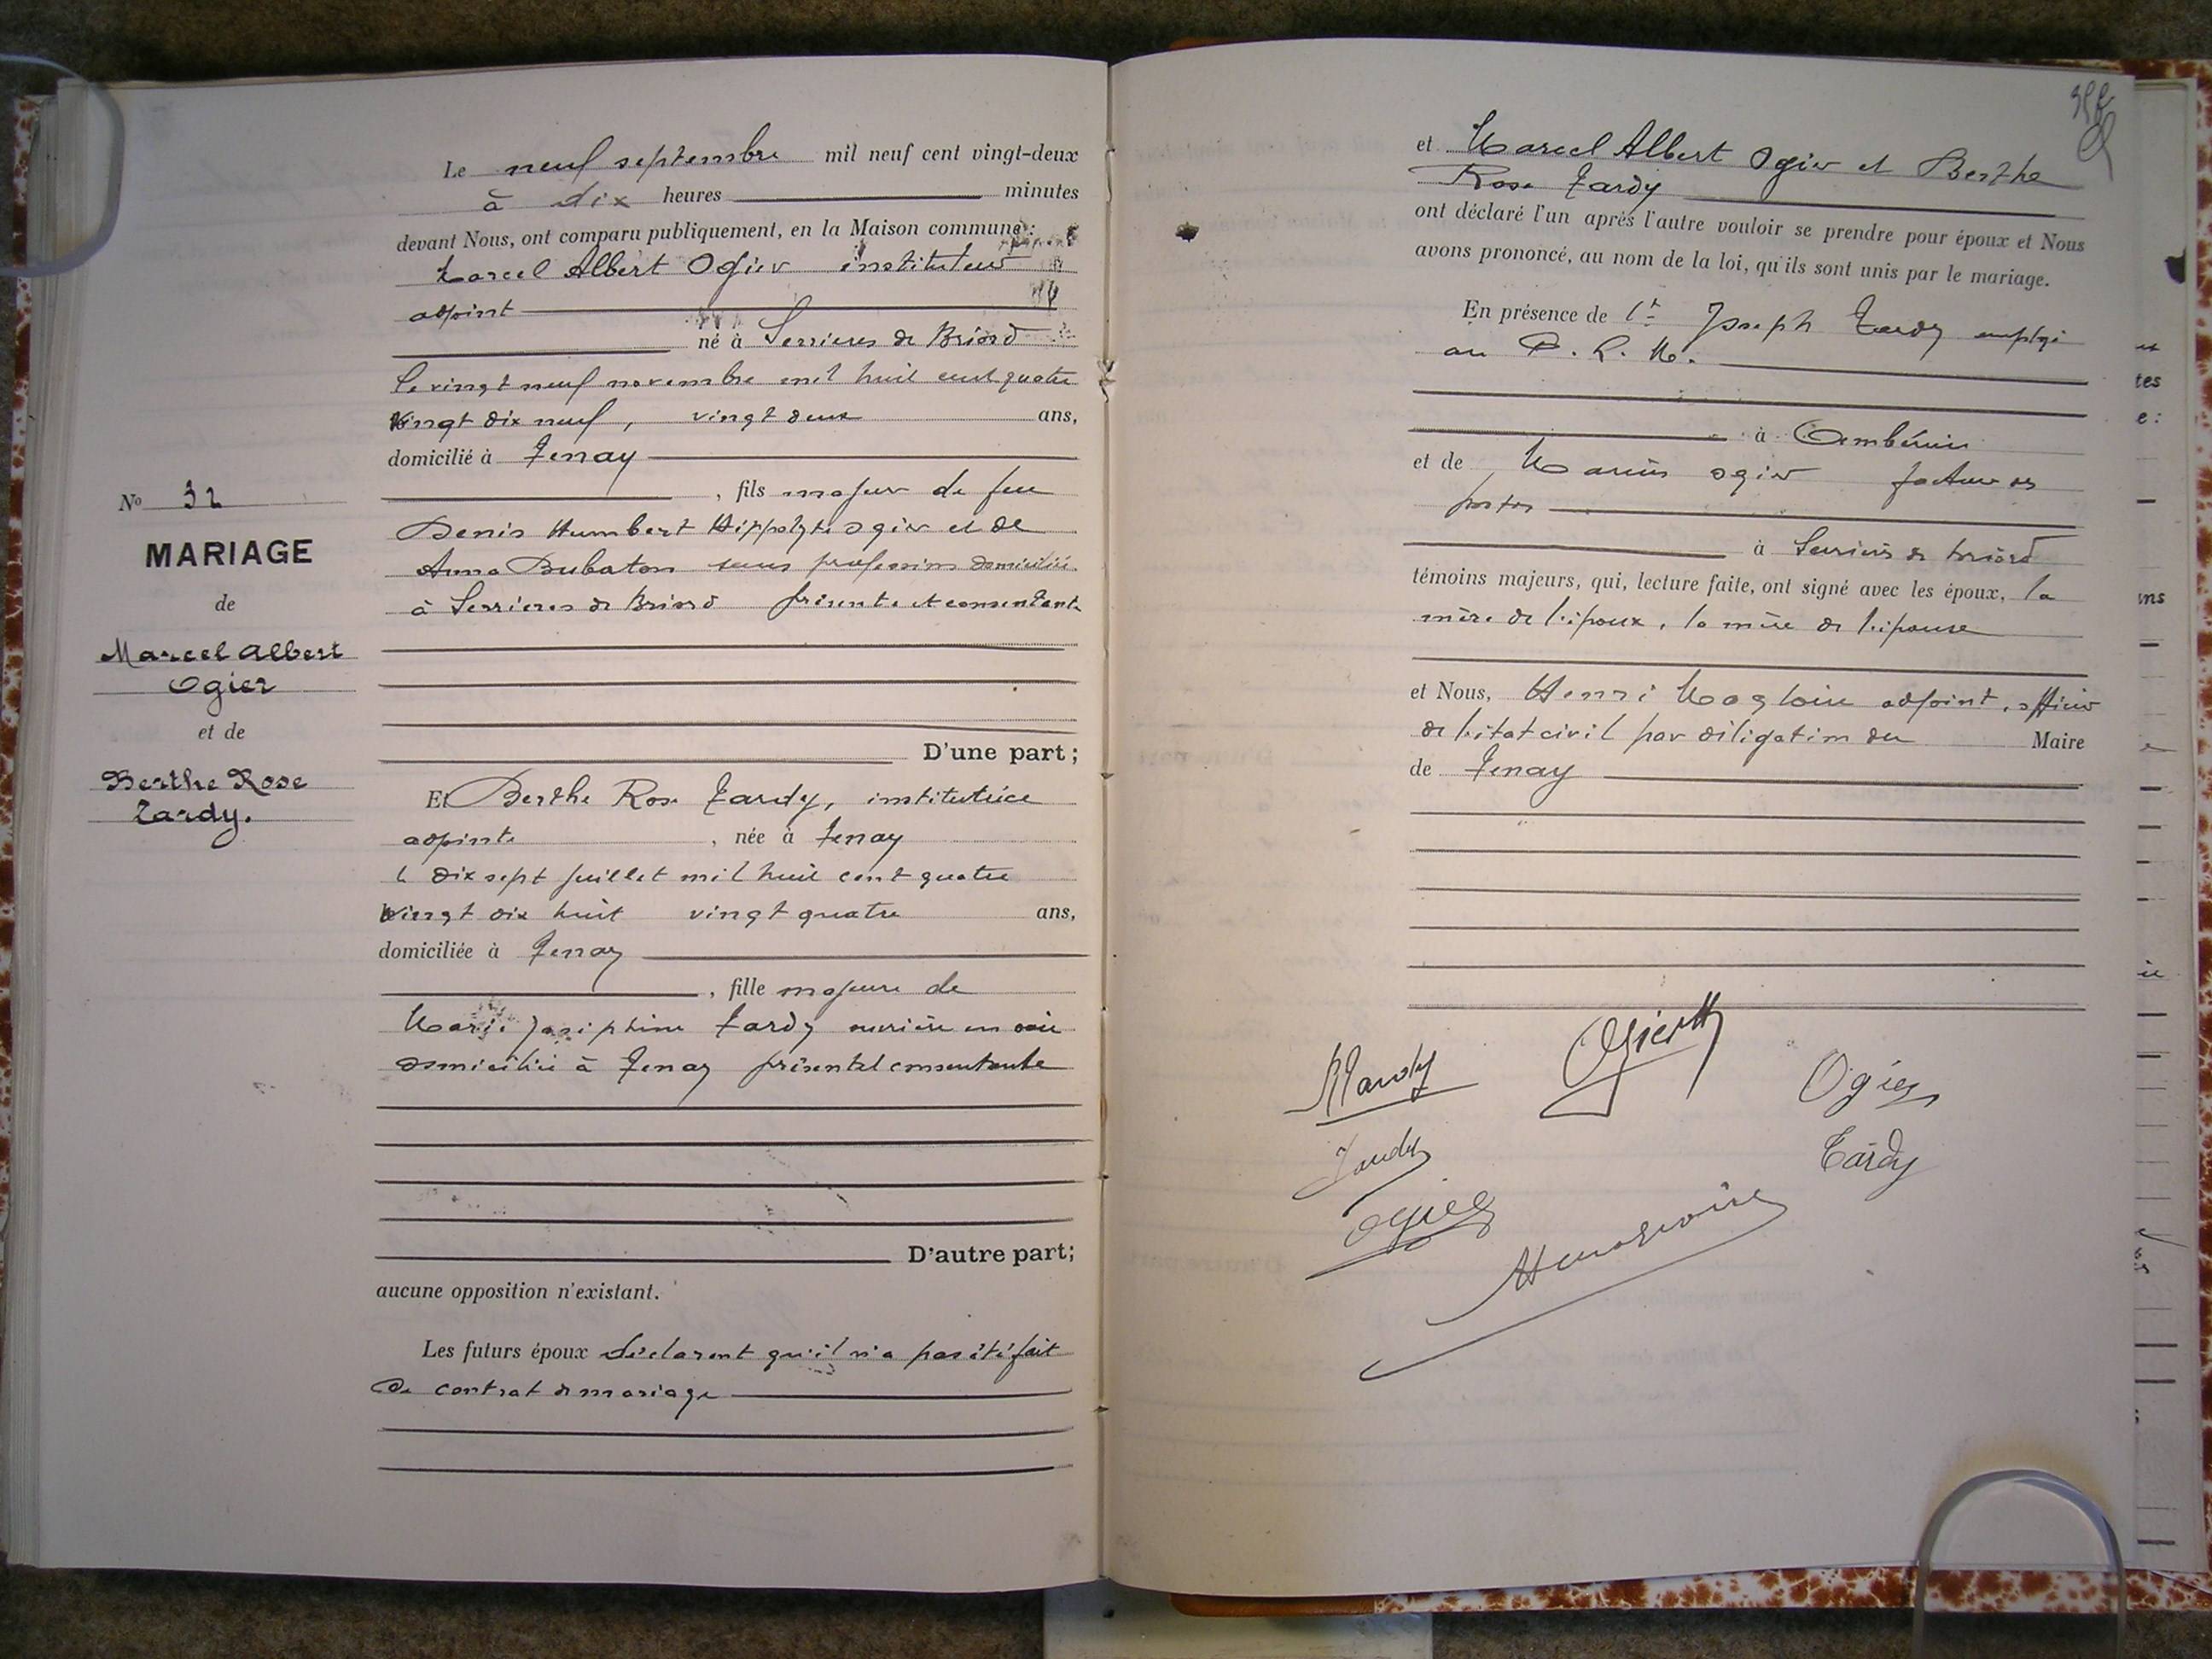 N° 32
MARIAGE
de
Marcel Albert
Ogier
et de
Berthe Rose
Tardy.
Le neuf septembre mil neuf cent vingt-deux
à dix heures minutes
devant Nous, ont comparu publiquement, en la Maison commune :
Marcel Albert Ogier instituteur
adjoint
né à Serrieres de Briord
le vingt neuf novembre mil huit cent quatre
vingt dix neuf, vingt deux ans,
domicilié à Tenay
, fils majeur de feu
Denis Humbert Hippolyte Ogier et de
Anna Dubaton sans profession domiciliée
à Serrieres de Briord présente et consentante
D'une part ;
Et Berthe Rose Tardy, institutrice
adjointe , née à Tenay
le dix sept juillet mil huit cent quatre
vingt dix huit vingt quatre ans,
domiciliée à Tenay
, fille majeure de
Marie Joséphine Tardy ouvrière en soie
domiciliée à Tenay présente et consentante
D'autre part;
aucune opposition n'existant.
Les futurs époux déclarent qu'il n'a pas été fait
de contrat de mariage
et Marcel Albert Ogier et Berthe
Rose Tardy
ont déclaré l'un après l'autre vouloir se prendre pour époux et Nous
avons prononcé, au nom de la loi, qu'ils sont unis par le mariage.
En présence de Joseph Tardy employé
au P. L. M.
à Ambérieu
et de Marius Ogier facteur des
postes
à Serrieres de Briord
témoins majeurs, qui, lecture faite, ont signé avec les époux, la
mère de l'époux, la mère de l'épouse
et Nous, Henri Magloire adjoint, officier
de l'état civil par délégation du Maire
de Tenay
RTardy
Ogier
Ogier
Tardy
Tardy
Ogier
HMagloire